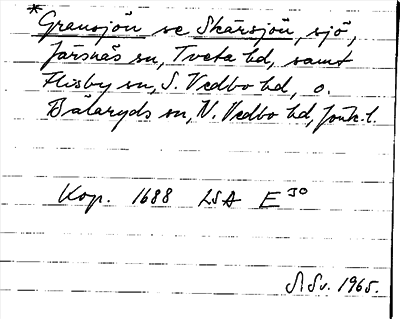 *
Gransjön se Skärsjön, sjö,
Järsnäs sn, Tveta hd, samt
Flisby sn, S. Vedbo hd, o.
Bälaryds sn, N. Vedbo hd, Jönk. l.
Kop. 1688 LSA E 30
S. Sv. 1965.